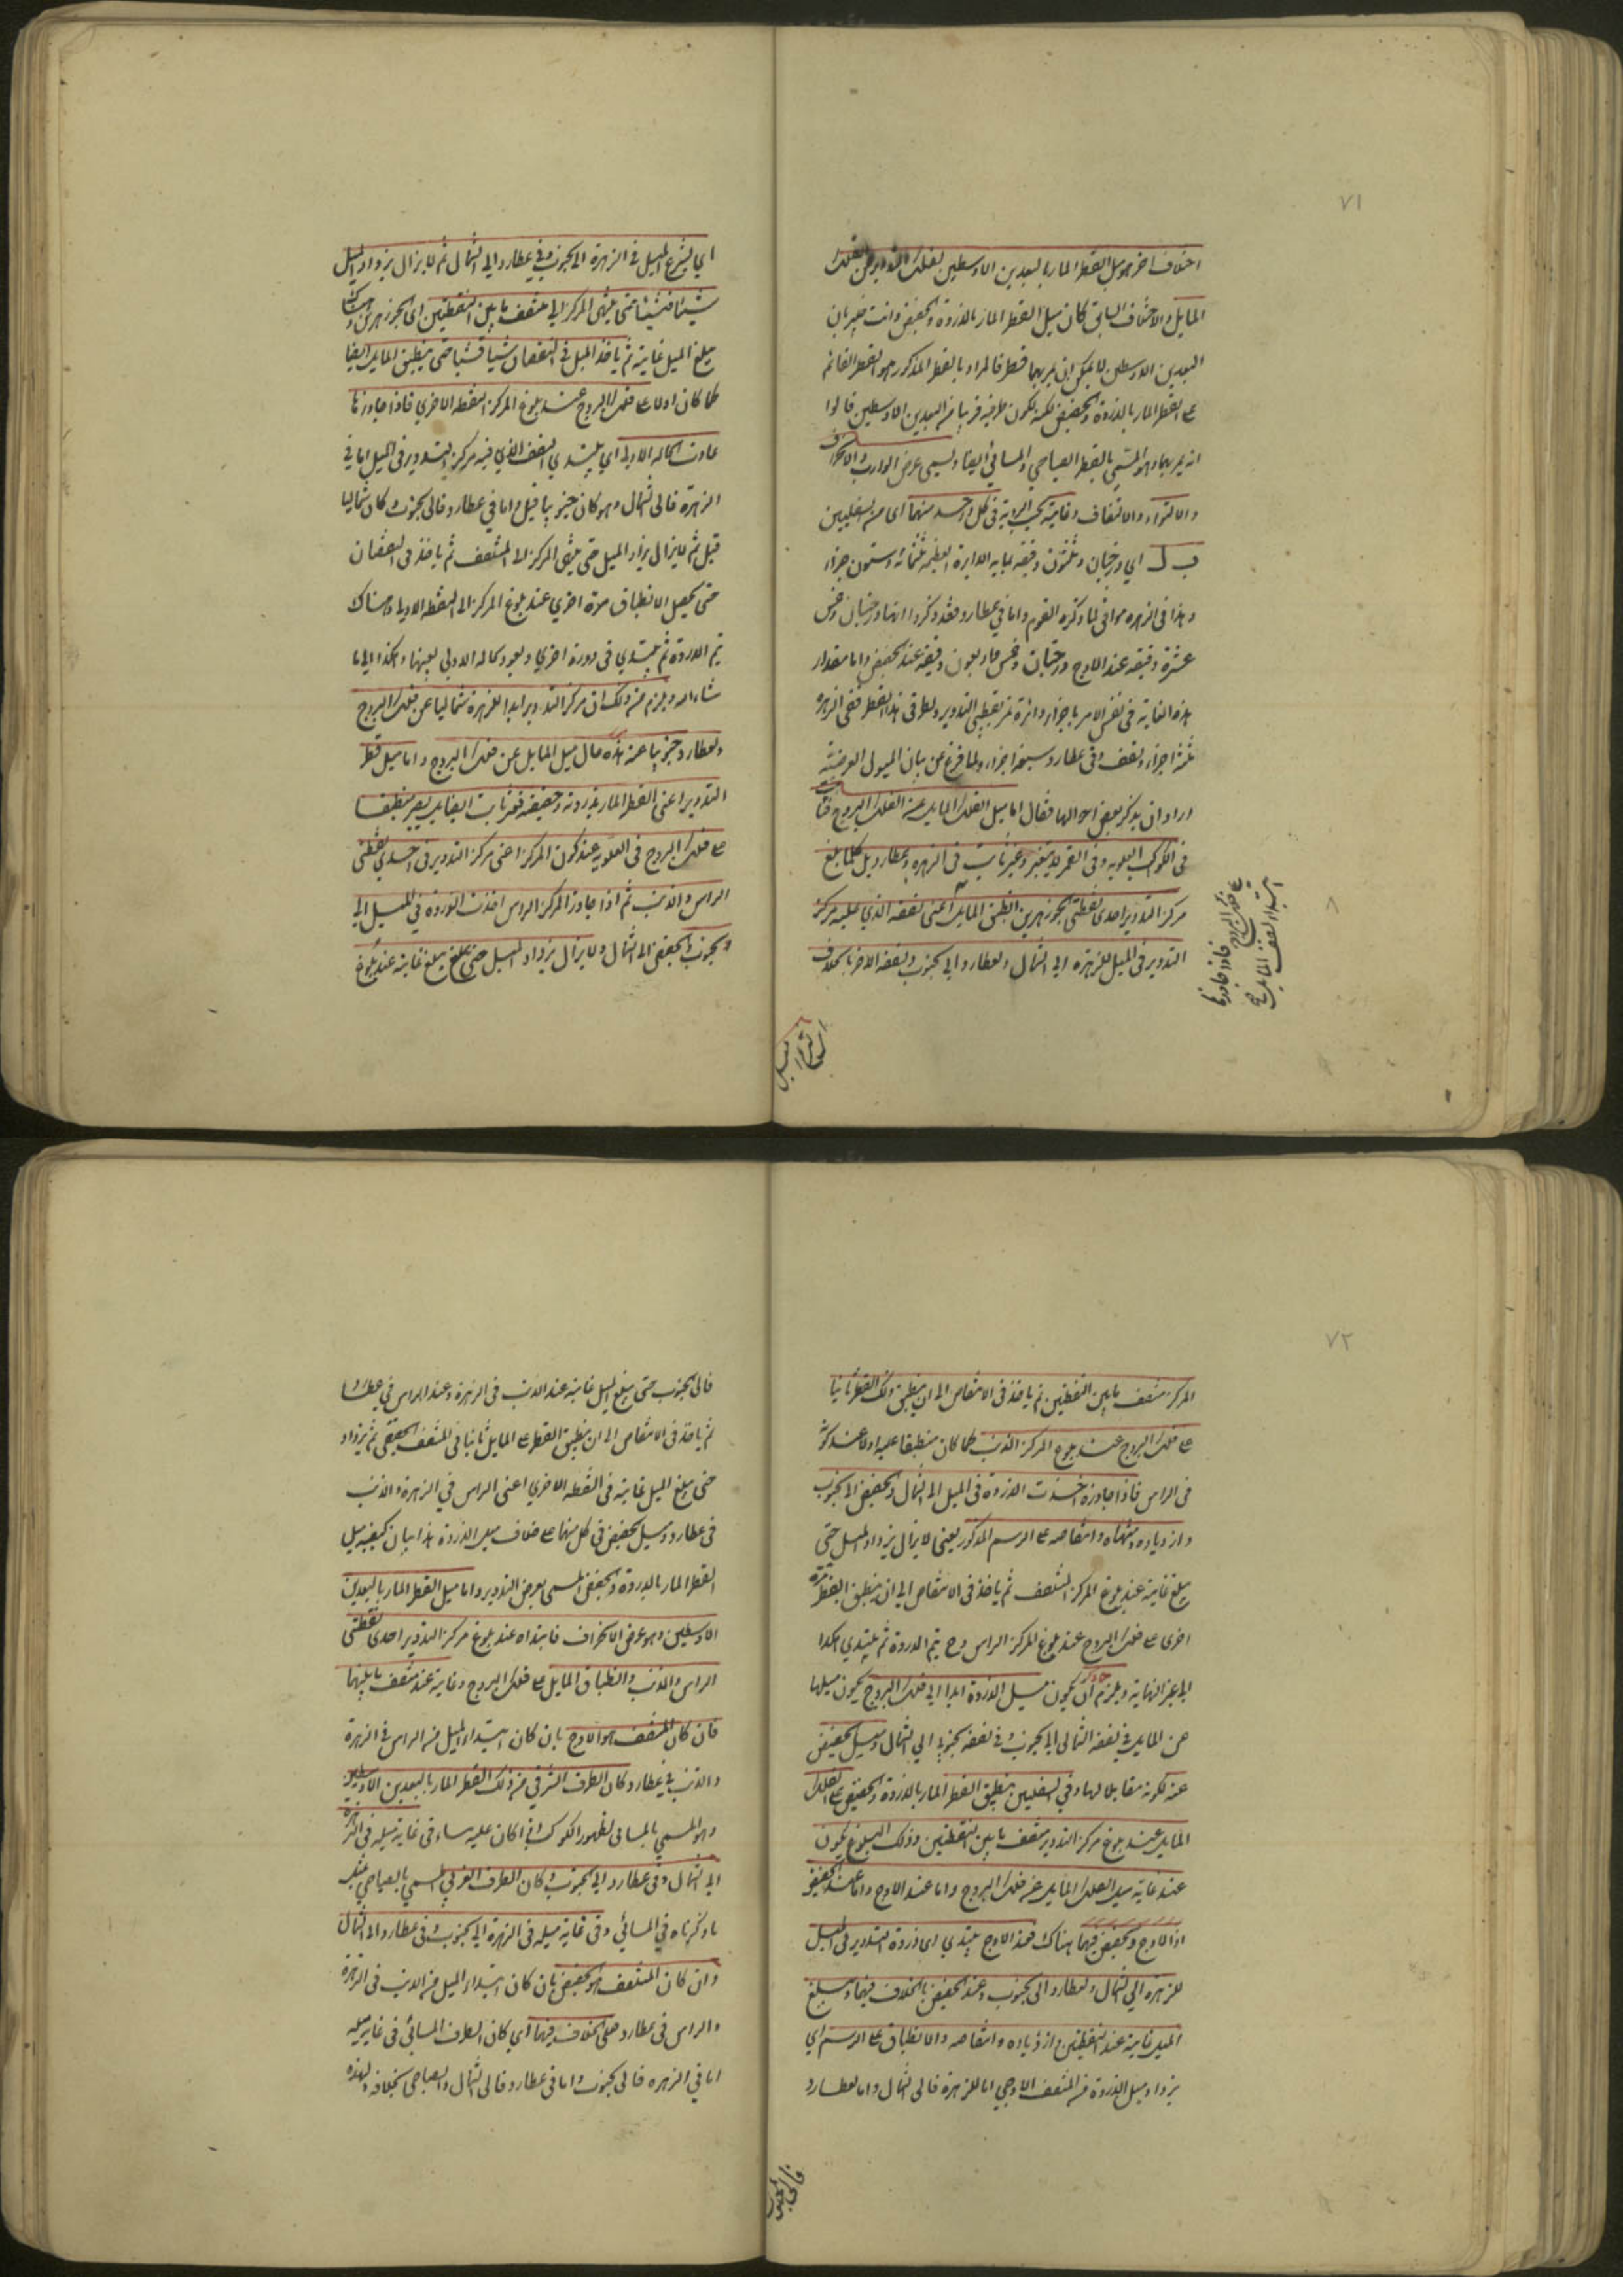 ٧١
اختلاف اخر هو ميل القطر المار بالبعدين الاوسطين لفلك التدوير عن الفلك
المايل والاختلاف السابق كان ميل القطر المار بالذروة والحضيض وانت خبير بان
البعدين الاوسطين لا يمكن ان يمر بهما قطر فالمراد بالقطر المذكور هو القطر القائم
على القطر المار بالذروة والحضيض لكنه لكون طرفيه قريبا من البعدين الاوسطين قالوا
انه يمر بهما وهو المسمى بالقطر الصباحي والمسائي ايضا ويسمى عرض الوراب والانحراف
والالتواء والالتفاف وغايته بحسب الرؤية في كل واحد منهما اى من السفليين
ب ل اي درجتان وثلثون دقيقة بما به الدايرة العظيمة ثلثمائة وستون جزءا
وهذا في الزهره موافق لما ذكره القوم واما في عطارد فقد ذكروا انها درجتان وخمس
عشرة دقيقه عند الاوج ودرجتان وخمس واربعون دقيقه عند الحضيض واما مقدار
هذه الغاية في نفس الامر باجزاء دائرة تمر بقطبي التدوير وبطرفي هذا القطر ففي الزهره
ثلثة اجزاء ونصف وفي عطارد سبعة اجزاء ولما فرغ من بيان الميول العرضية
اراد ان يذكر بعض احوالها فقال اما ميل الفلك المايل عن الفلك البروج فثابت
في الكواكب العلويه وفي القمر لا يتغير وغير ثابت في الزهره وعطارد بل كلما بلغ
مركز التدوير احدى نقطتي الجوزهرين انطبق المايل اعنى نصفه الذي عليه مركز
التدوير في الميل للزهره الى الشمال ولعطارد الى الجنوب ونصفه الاخر بالخلاف
على فلك البروج فاذا جاوزها
ابتداء نصف المايل
اي يشرع الميل في الزهرة الى الجنوب وفي عطارد الى الشمال ثم لا يزال يزداد الميل
شيئا فشيئا حتى ينتهى المركز الى منتصف ما بين النقطتين اى الجوزهرين وهناك
يبلغ الميل غايته ثم ياخذ الميل في النقصان شيئا فشيئا حتى ينطبق المايل ايضا
كما كان اولا على فلك البروج عند بلوغ المركز النقطة الاخرى فاذا جاوزها
عادت الحالة الاولى اي يبتدي النصف الذي فيه مركز التدوير في الميل اما في
الزهرة فالى الشمال وهو كان جنوبيا قبل واما في عطارد فالى الجنوب وكان شماليا
قبل ثم لا يزال يزداد الميل حتى ينتهى المركز الى المنتصف ثم ياخذ في النقصان
حتى يحصل الانطباق مرة اخرى عند بلوغ المركز الى النقطة الاولى وهناك
تم الدورة ثم يبتدي في دورة اخرى ويعود كالحالة الاولى بعينها وهكذا الى ما
شاء الله ويلزم من ذلك ان مركز التدوير ابدا للزهرة شماليا عن فلك البروج
ولعطارد جنوبيا عنه هذه حال ميل المايل عن فلك البروج واما ميل قطر
التدوير اعنى القطر المار بذروته وحضيضه فغير ثابت ايضا بل يصير منطبقا
على فلك البروج في العلويه عند كون المركز اعنى مركز التدوير في احدى نقطتي
الراس والذنب ثم اذا جاوز المركز الراس اخذت الذروة في الميل الى
الجنوب والحضيض الى الشمال ولا يزال يزداد الميل حتى يبلغ غايته عند بلوغ
٧٢
المركز منتصف ما بين النقطتين ثم ياخذ في الانتقاص الى ان ينطبق ذلك القطر ثانيا
على فلك البروج عند بلوغ المركز الذنب كما كان منطبقا عليه اولا عند كونه
في الراس فاذا جاوزه اخذت الذروة في الميل الى الشمال والحضيض الى الجنوب
وازدياده ومنتهاه وانتقاصه على الرسم المذكور يعنى لا يزال يزداد الميل حتى
يبلغ غايته عند بلوغ المركز المنتصف ثم ياخذ في الانتقاص الى ان ينطبق القطر مرة
اخرى على فلك البروج عند بلوغ المركز الراس وح يتم الدورة ثم يبتدي هكذا
الى غير النهاية ويلزم ان يكون ميل الذروة ابدا الى فلك البروج يكون ميلها
عن المايل في نصفه الشمالي الى الجنوب وفي نصفه الجنوبي الى الشمال وميل الحضيض
عنه لكونه مقابلا لها وفي السفليين ينطبق القطر المار بالذروة والحضيض على الفلك
المايل عند بلوغ مركز التدوير منتصف ما بين النقطتين وذلك البلوغ يكون
عند غاية ميل الفلك المايل عن فلك البروج واما عند الاوج واما عند الحضيض
اذ الاوج والحضيض فيهما هناك فعند الاوج يبتدي اى ذروة التدوير في الميل
للزهرة الى الشمال ولعطارد الى الجنوب وعند الحضيض بالخلاف فيهما ويبلغ
الميل غايته عند النقطتين وازدياده وانتقاصه والانطباق على الرسم اي
يزداد ميل الذروة من المنتصف الاوجي اما للزهرة فالى الشمال واما لعطارد
فالى الجنوب
فالى الجنوب حتى يبلغ الميل غايته عند الذنب في الزهرة وعند الراس في عطارد
ثم ياخذ في الانتقاص الى ان ينطبق القطر على المايل ثانيا في المنتصف الحضيضي ثم يزداد
حتى يبلغ الميل غايته في النقطة الاخرى اعنى الراس في الزهرة والذنب
في عطارد وميل الحضيض في كل منهما على خلاف ميل الذروة هذا بيان كيفية ميل
القطر المار بالذروة والحضيض المسمى بعرض التدوير واما ميل القطر المار بالبعدين
الاوسطين وهو عرض الانحراف فابتداه عند بلوغ مركز التدوير احدى نقطتي
الراس والذنب وانطباق المايل على فلك البروج وغايته عند منتصف ما بينهما
فان كان المنتصف هو الاوج بان كان ابتداء الميل من الراس في الزهرة
والذنب في عطارد كان الطرف الشرقي من ذلك القطر المار بالبعدين الاوسطين
وهو المسمى بالمسائي لظهور الكوكب اذا كان عليه مساء في غاية ميله في الزهره
الى الشمال وفي عطارد الى الجنوب وكان الطرف الغربي المسمى بالصباحي بمثل
ما ذكرناه في المسائي وفي غاية ميله في الزهرة الى الجنوب وفي عطارد الى الشمال
وان كان المنتصف هو الحضيض بان كان ابتداء الميل من الذنب في الزهرة
والراس في عطارد فعلى الخلاف فيهما اي كان الطرف المسائي في غاية ميله
اما في الزهره فالى الجنوب واما في عطارد فالى الشمال والصباحي بخلافه ولهذه